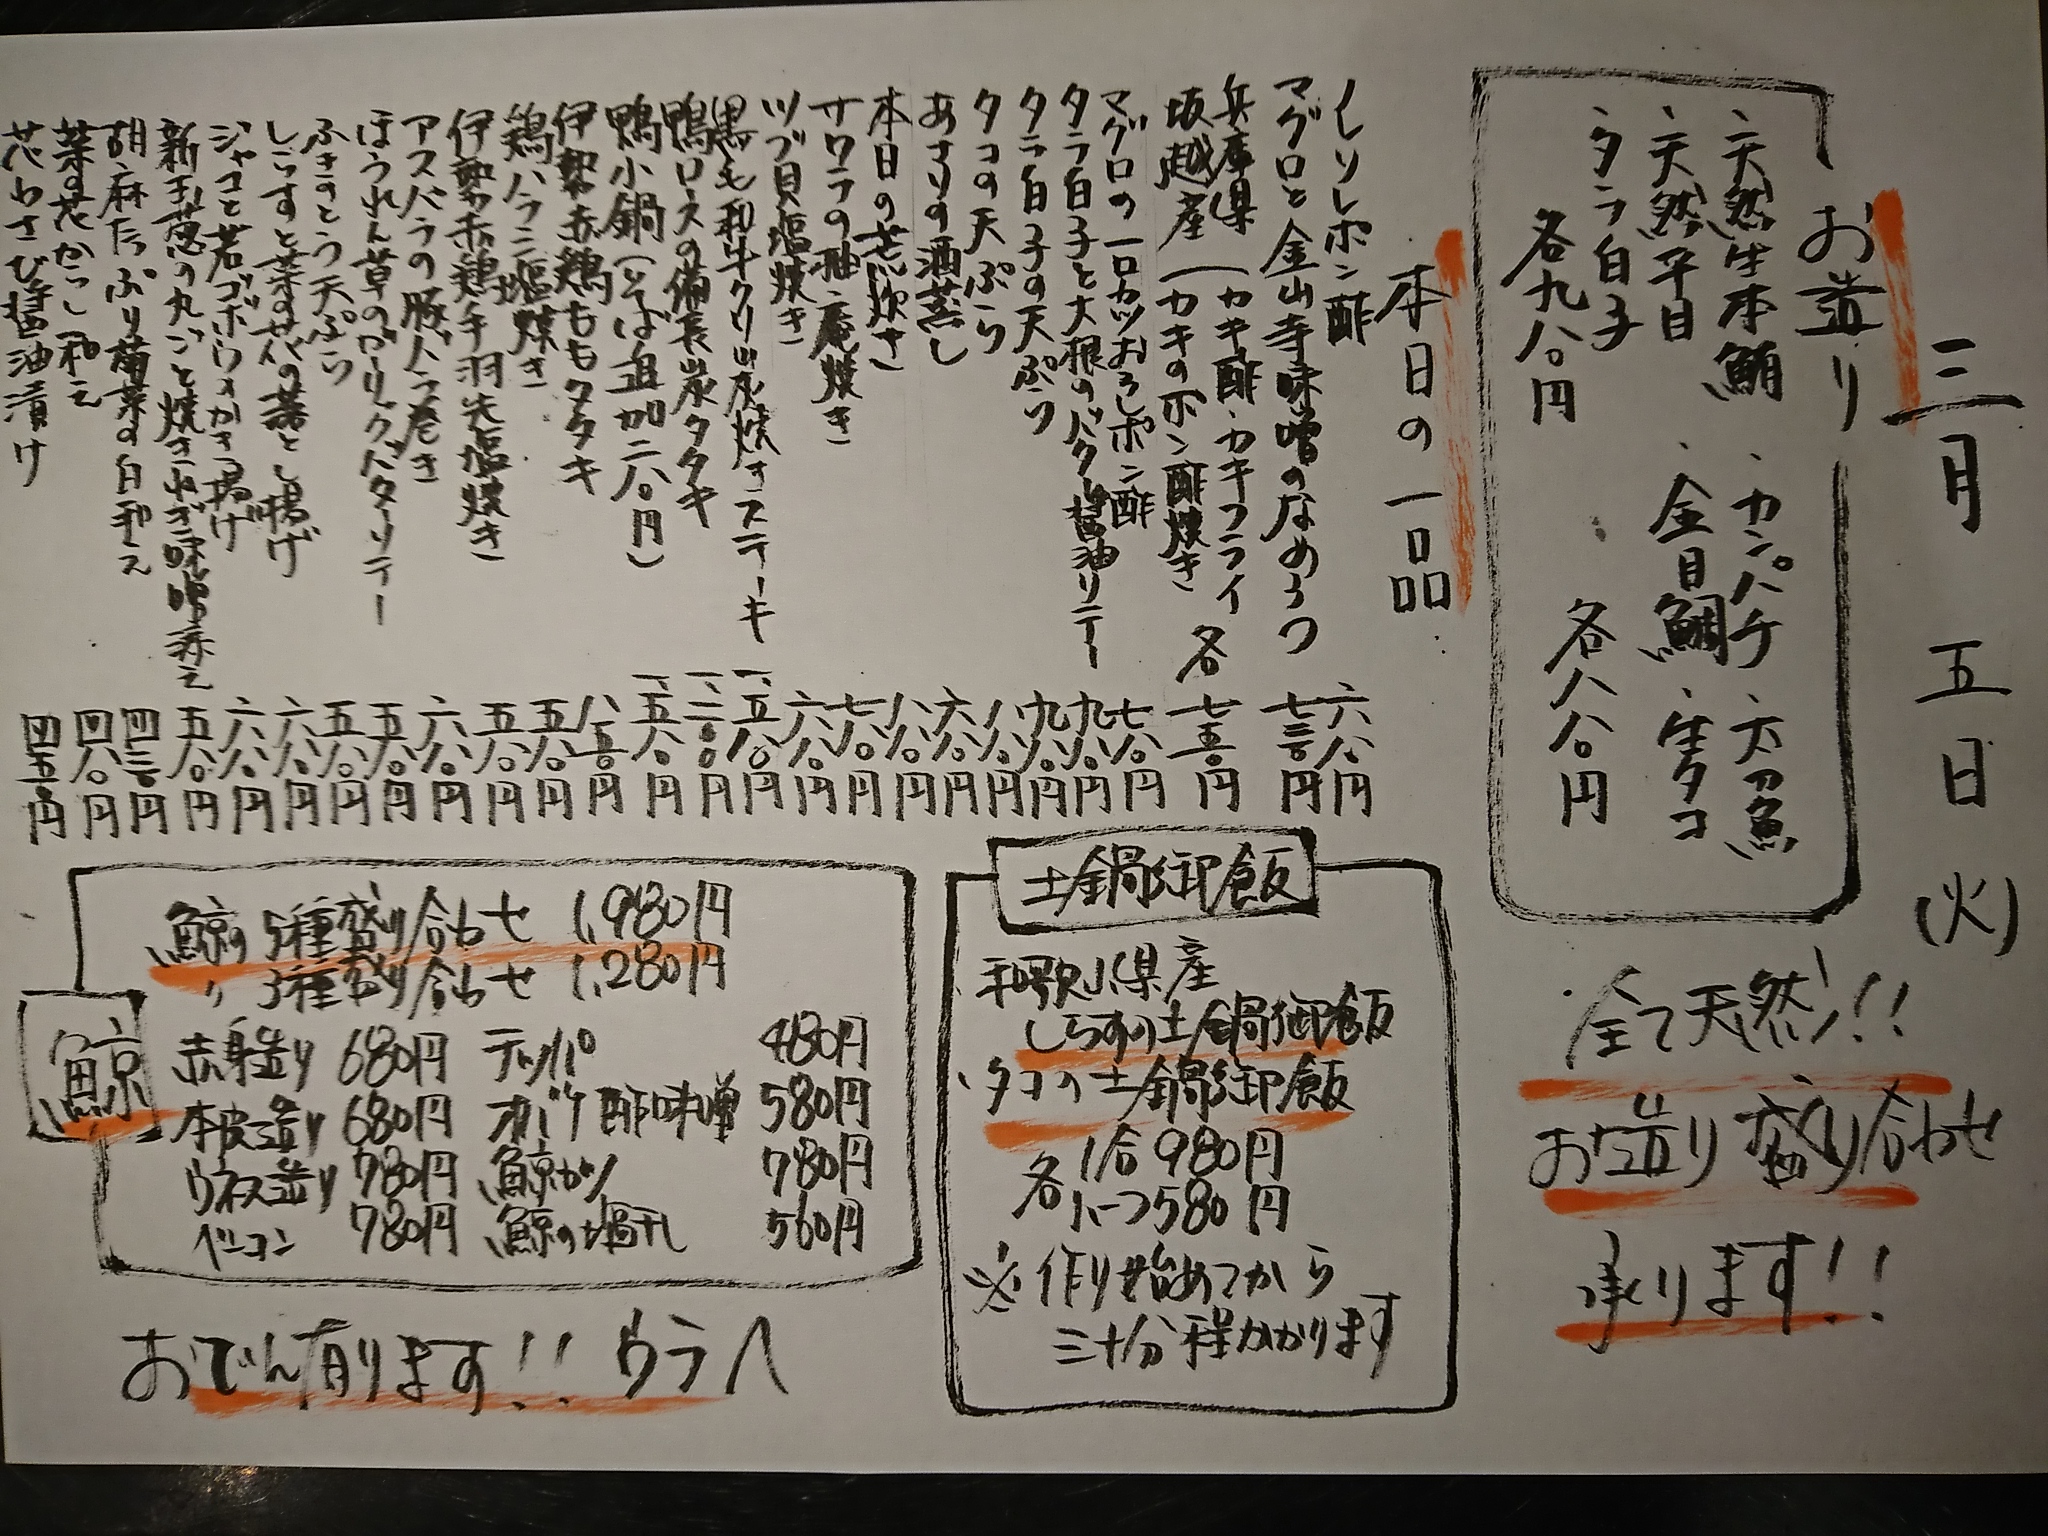 三月五日(火)
お造り
・天然生本鮪
・天然平目
・タラ白子
各九八〇円
・カンパチ・太刀魚
・金目鯛・生タコ
各八八〇円
全て天然!!
お造り盛り合わせ
承ります!!
本日の一品
イレソレポン酢 六八〇円
マグロと金山寺味噌のなめろう 七三〇円
兵庫県坂越産
(カキ酢・カキフライ
(カキのポン酢焼き 各七五〇円
マグロの一口カツおろしポン酢 七八〇円
タラ白子と大根のバター醤油ソテー 九八〇円
タラ白子の天ぷら 九八〇円
タコの天ぷら 八八〇円
あさりの酒蒸し 六八〇円
本日の荒炊き 八八〇円
サワラの柚庵焼き 七八〇円
ツブ貝塩焼き 六八〇円
黒毛和牛クリ炭焼きステーキ 一、五八〇円
鴨ロースの備長炭タタキ 一、二〇〇円
鴨小鍋(そば追加二八〇円) 一、五八〇円
伊勢赤鶏ももタタキ 八五〇円
鶏ハラミ塩焼き 五八〇円
伊勢赤鶏手羽先塩焼き 五八〇円
アスパラの豚バラ巻き 六八〇円
ほうれん草のガーリックバターソテー 五八〇円
ふきのとう天ぷら 五八〇円
しらすと菜の花の落とし揚げ 六八〇円
ジャコと若ゴボウのかき揚げ 六八〇円
新玉葱の丸ごと焼きねぎ味噌添え 五八〇円
胡麻たっぷり菊菜の白和え 四三〇円
菜の花からし和え 四八〇円
花わさび醤油漬け 四五〇円
土鍋御飯
和歌山県産
しらすの土鍋御飯
・タコの土鍋御飯
各 1合 980円
ハーフ580円
※作り始めてから
三十分程かかります
鯨
鯨の5種盛り合わせ 1,980円
〃 3種盛り合わせ 1,280円
赤身造り 680円 テッパ 480円
本皮造り 680円 オバケ酢味噌 580円
ウネス造り 780円 鯨カツ 780円
ベーコン 780円 鯨の塩干し 560円
おでん有ります!! ウラへ